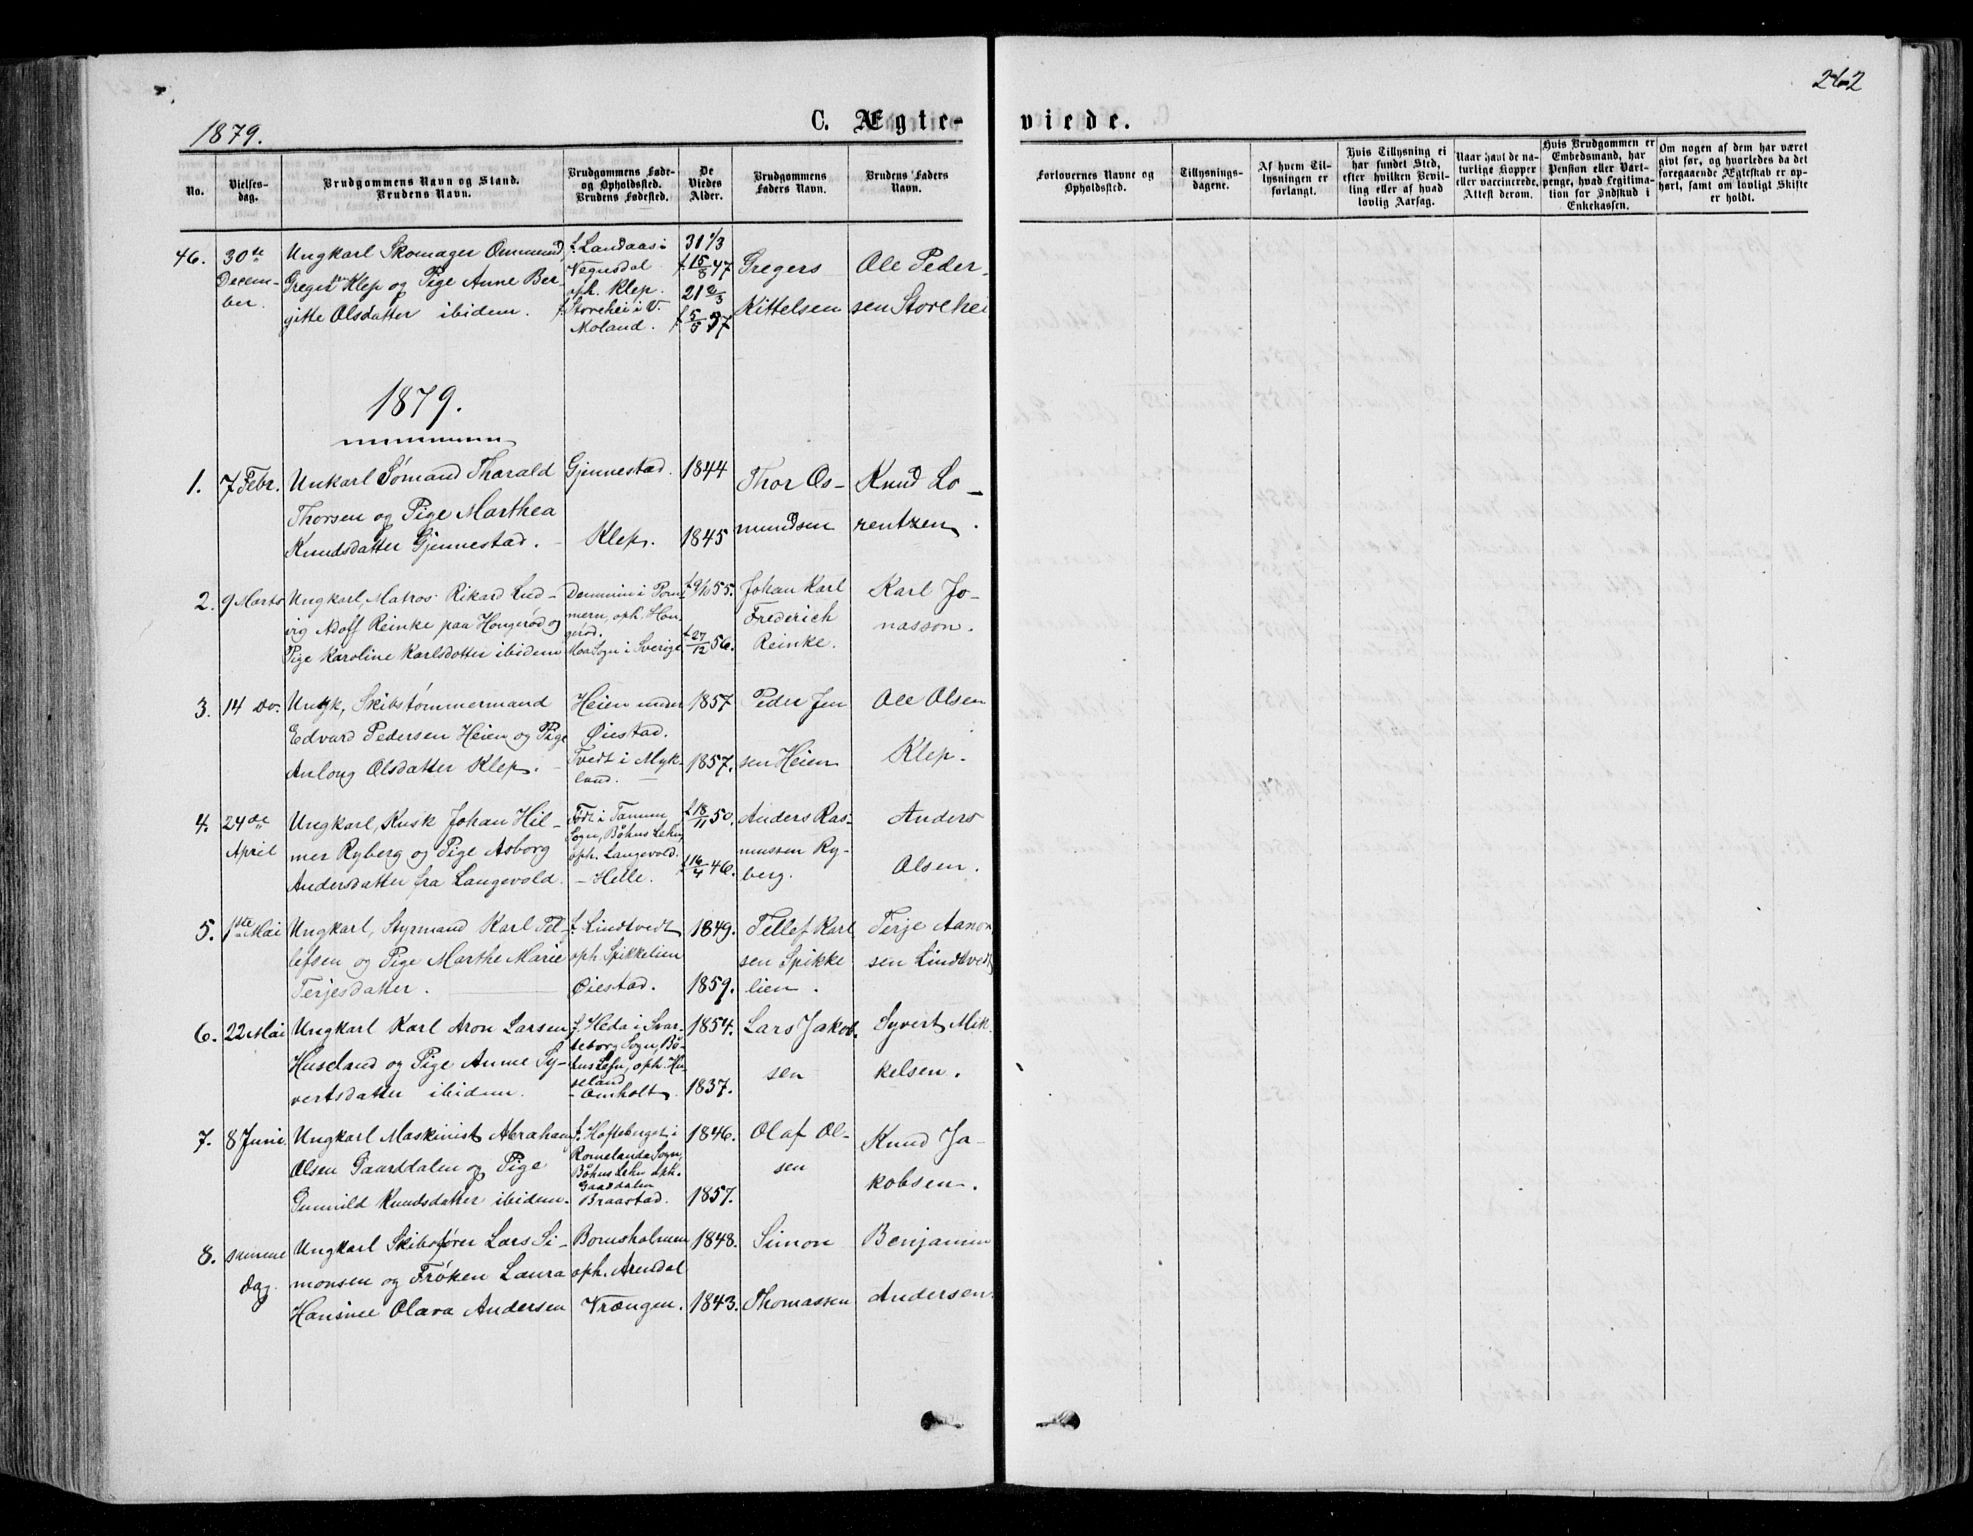 262
1879.
C. Ægte-
viede.
No.
Vielses-
dag.
Brudgommens Navn og Stand.
Brudens Navn.
Brudgommens Føde-
og Opholdssted.
Brudens Fødested.
De
Viedes
Alder.
Brudgommens
Faders Navn.
Brudens Faders
Navn.
Forlovernes Navne og
Opholdssted.
Tillysnings-
dagene.
Af hvem Til-
lysningen er
forlangt.
Hvis Tillysning ei
har fundet Sted,
efter hvilken Bevil-
ling eller af hvad
lovlig Aarsag.
Naar havt de na-
turlige Kopper
eller vaccinerede.
Attest derom.
Hvis Brudgommen er
Embedsmand, har
Pension eller Vart-
penge, hvad Legitima-
tion for Indskud i
Enkekassen.
Om nogen af dem har været
givt før, og hvorledes da det
foregaaende Ægteskab er op-
hørt, samt om lovligt Skifte
er holdt.
46.
30te
Decem-
ber.
Ungkarl Skomager Ommund
Gregers. Klep og Pige Anne Ber-
gitte Olsdatter ibidem.
f. Landaas i
Vegusdal
oph. Klep.
f. Storehei i V.
Moland.
31 1/3
f. 15/8 47
21 2/3
f. 5/5 57
Gregers
Kittelsen
Ole Peder-
sen Storehei
1879.
1.
7 Febr.
Unkarl Sømand Tharald
Thorsen og Pige Marthea
Knudsdatter Gjennestad.
Gjennestad.
Klep.
1844
1845
Thor Os-
mundsen
Knud Lo-
rentzen.
2.
9 Marts
Ungkarl, Matros Rikard Lud-
vig Adolf Reinke paa Hongerød og
Pige Karoline Karlsdotter ibidem
Demmin i Pom
mern, oph. Hon
gerød.
Moa Sogn i Sverige
f. 9/10 55.
f. 27/12 56.
Johan Karl
Frederich
Reinke.
Karl Jo-
nasson.
3.
14 Do.
Ungk, Skibstømmermand
Edvard Pedersen Heien og Pige
Anlong Olsdatter Klep.
Heien under
Øiestad.
Tvedt i Myk-
land.
1857
1857.
Peder Jen
sen Heien
Ole Olsen
Klep.
4.
24de
April
Ungkarl, Kusk Johan Hil-
mer Ryberg og Pige Asborg
Andersdatter fra Langevold.
Født i Tanum
Sogn, Bøhus Lehn,
oph. Langevold.
- Helle.
f. 18/11 50.
f. 16/4 46.
Anders Ras-
mussen Ry-
berg.
Anders
Olsen.
5.
1ste Mai
Ungkarl, Styrmand Karl Tel-
lefsen og Pige Marthe Marie
Terjesdatter.
f. Lindtvedt
oph. Spikkelien
Øiestad.
1849.
1859.
Tellef Karl
sen Spikke
lien.
Terje Aanon
sen Lindtvedt
6.
22 Mai
Ungkarl Karl Aron Larsen
Huseland og Pige Anne Sy-
vertsdatter ibidem.
f. Heda i Svar-
teborg Sogn, Bø-
hus Lehn, oph. Hu-
seland
- Omholt.
1854.
1837.
Lars Jakob.
sen
Syvert Mik-
kelsen.
7.
8 Juni
Ungkarl Maskinist Abraham
Olsen Gaarddalen og Pige
Gunnild Knudsdatter ibidem.
f. Hofteberget i
Romelanda Sogn,
Bøhus Lehn oph.
Gaarddalen
Braastad.
1846.
1857.
Olaf Ol-
sen
Knud Ja-
kobsen.
8.
samme
Dag.
Ungkarl Skibsfører Lars Si-
monsen og Frøken Laura
Hansine Olava Andersen
Bornsholmen
oph. Arendal
Vrængen.
1848.
1843.
Simon
Thomassen
Benjamin
Andersen.